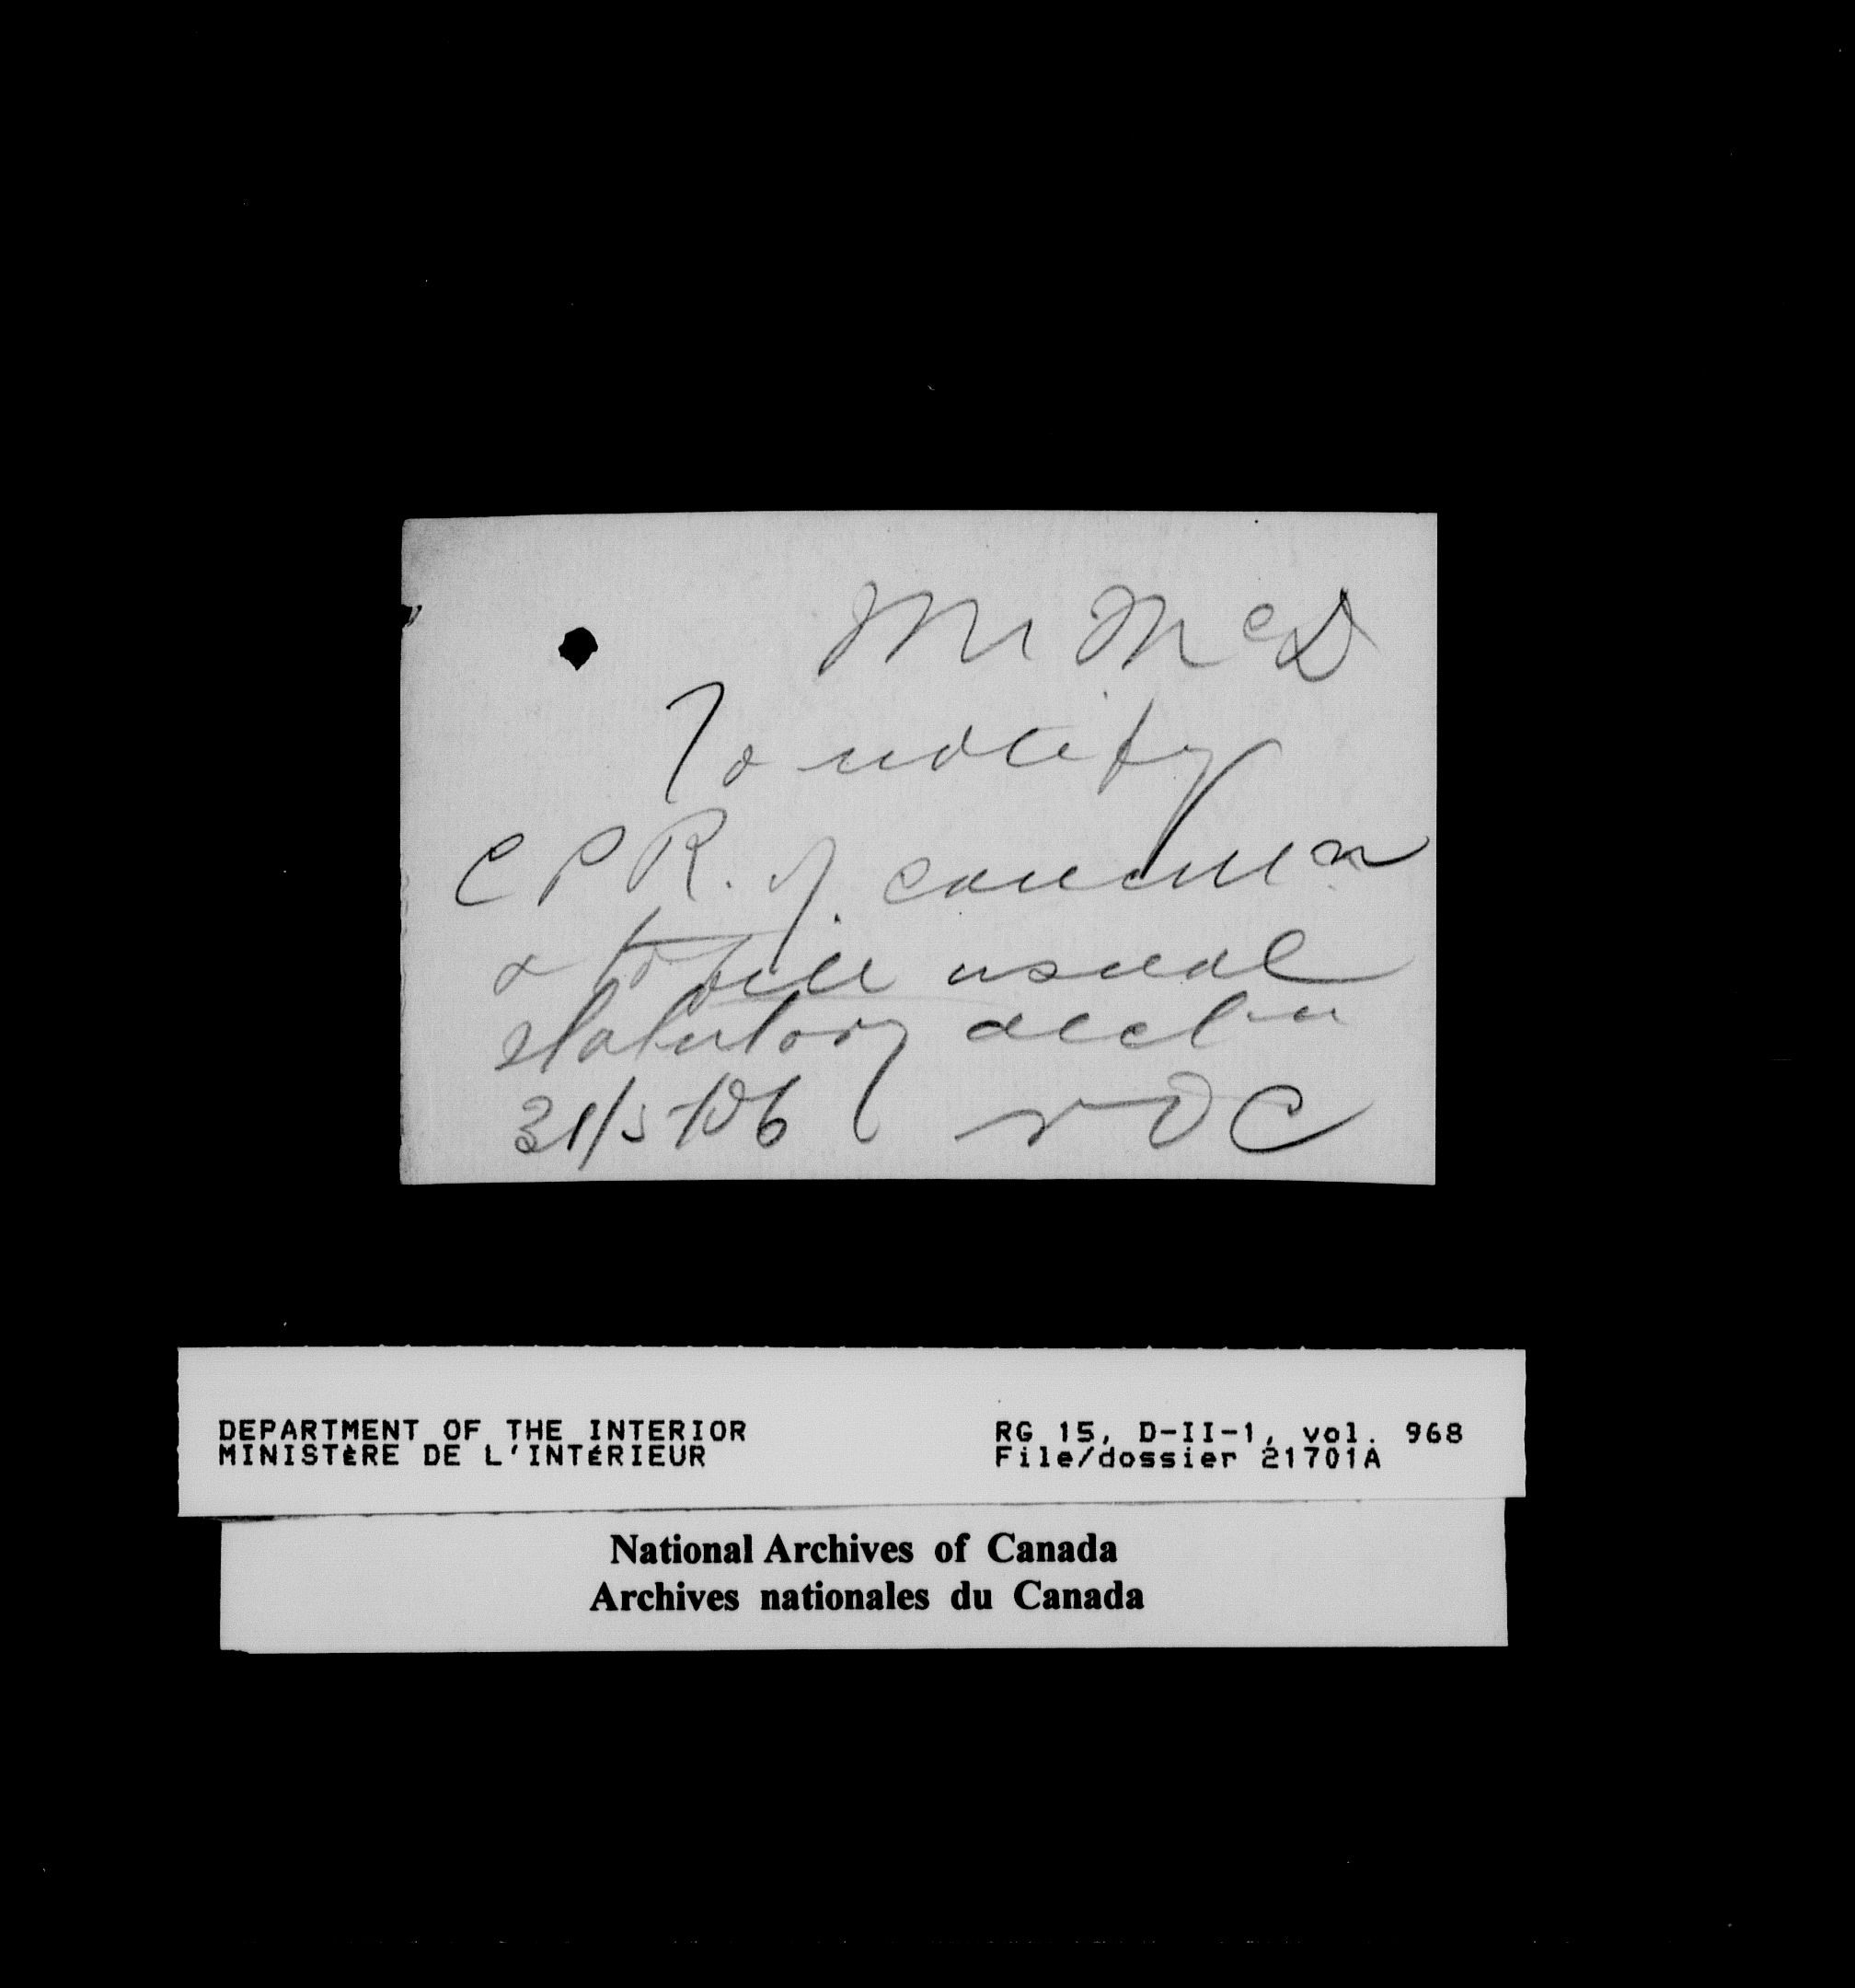 Mr McD
To notify
C P R. of cancell n
& to file usual
statutory decl n
31/5/06 N O C
DEPARTMENT OF THE INTERIOR
MINISTÈRE DE L'INTÉRIEUR
RG 15, D-II-1, vol. 968
File/dossier 21701A
National Archives of Canada
Archives nationales du Canada